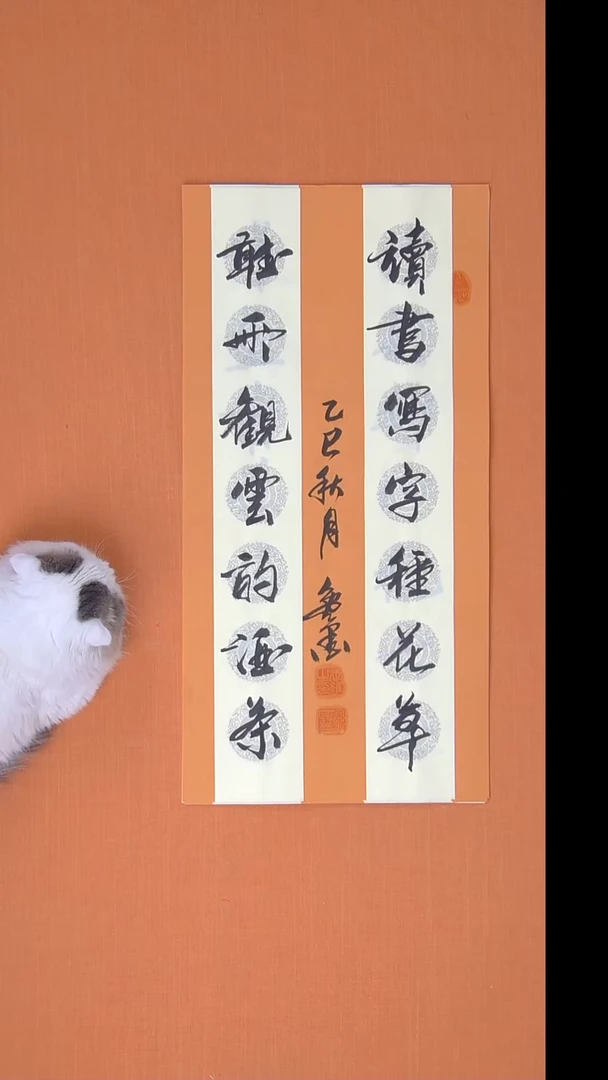 讀書寫字種花草
聽雨觀雲酌酒茶
乙巳秋月